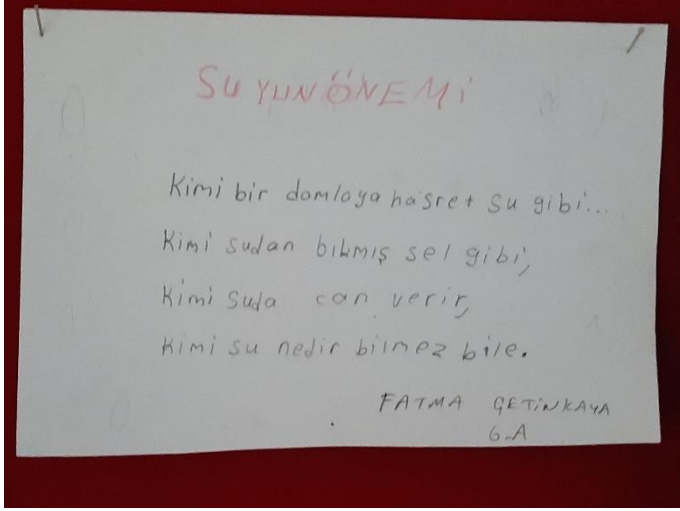 SUYUN ÖNEMİ
Kimi bir damlaya hasret su gibi...
Kimi sudan bıkmış sel gibi,
Kimi suda can verir,
Kimi su nedir bilmez bile.
FATMA ÇETİNKAYA
6-A